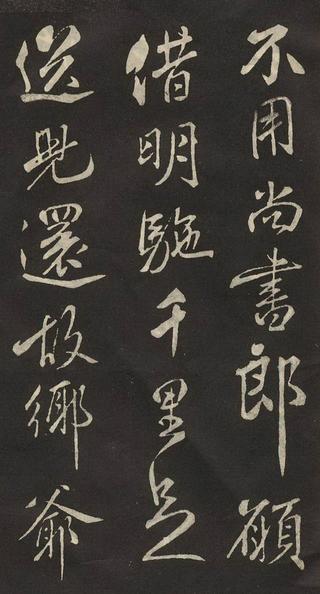 不用尚書郎願
借明駞千里足
送兒還故鄉爺